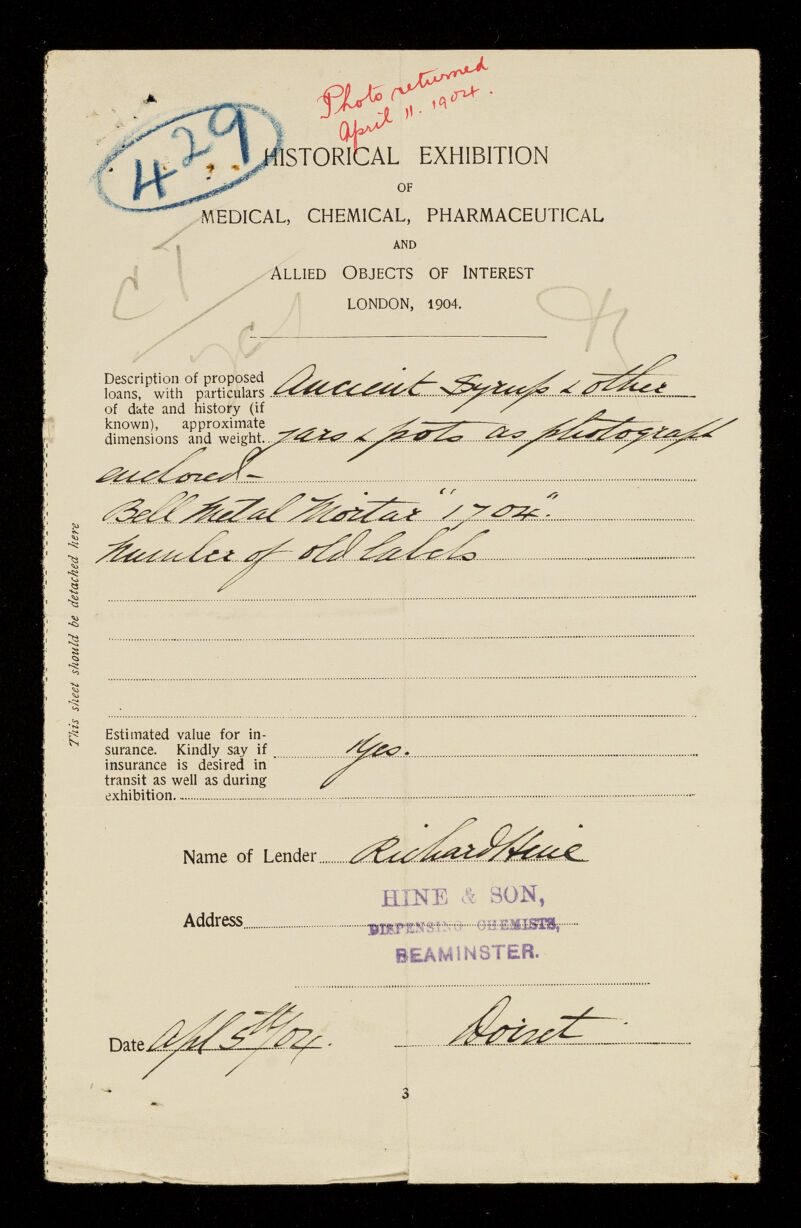 Photo returned
April 11. 1904.
429
HISTORICAL EXHIBITION
OF
MEDICAL, CHEMICAL, PHARMACEUTICAL
AND
ALLIED OBJECTS OF INTEREST
LONDON, 1904.
Description of proposed
loans, with particulars
of date and history (if
known), approximate
dimensions and weight.
Ancient Syrup & other
jars & pots as photograph
enclosed -
Bell Metal Mortar "1704".
Number of old labels
This sheet should be detached here
Estimated value for in-
surance. Kindly say if
insurance is desired in
transit as well as during
exhibition.
Yes.
Name of Lender Richard Hine
Address
HINE & SON,
DISPENSING CHEMISTS,
BEAMINSTER.
Dorset
Date Apl 5th/04.
3